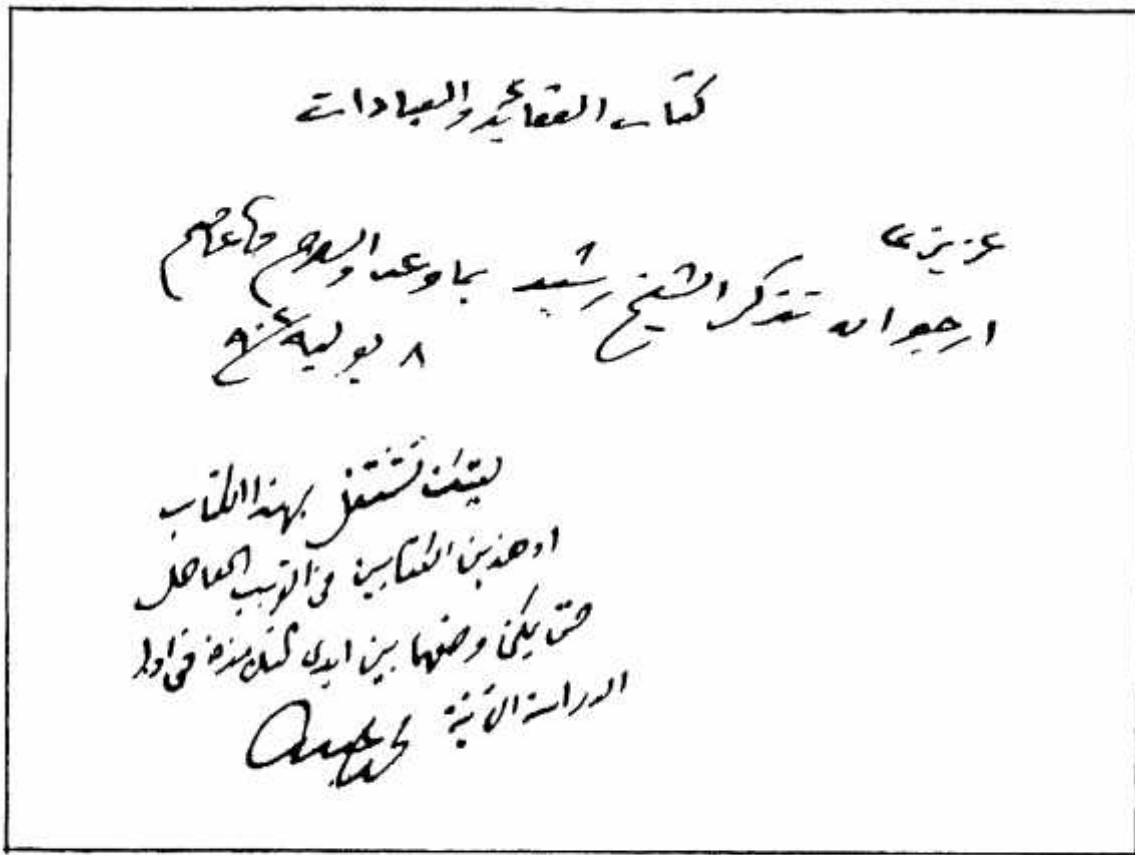 كتاب العقائد والعبادات
عزيزي
ارجو ان تذكر الشيخ رشيد بما وعد والسلام
٨ يوليه
ليتك تشتغل بهذا الكتاب
او هذين الكتابين في القريب العاجل
حتى يمكن وضعها بين ايدي التلامذة في اول
الدراسة الآتية محمد عبده